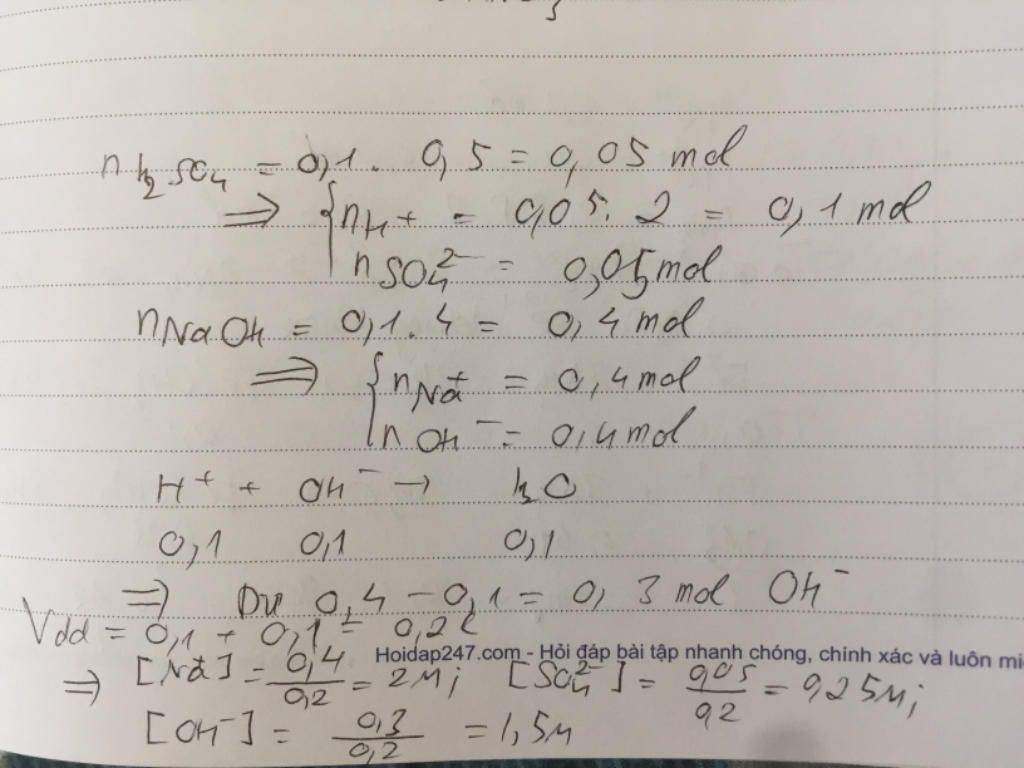 nH₂SO₄ = 0,1 . 0,5 = 0,05 mol
⇒ { nH⁺ = 0,05 . 2 = 0,1 mol
nSO₄²⁻ = 0,05 mol
nNaOH = 0,1 . 4 = 0,4 mol
⇒ { nNa⁺ = 0,4 mol
nOH⁻ = 0,4 mol
H⁺ + OH⁻ → H₂O
0,1 0,1 0,1
⇒ Dư 0,4 - 0,1 = 0,3 mol OH⁻
Vdd = 0,1 + 0,1 = 0,2l
Hoidap247.com - Hỏi đáp bài tập nhanh chóng, chính xác và luôn mi
⇒ [Na⁺] = 0,4/0,2 = 2M; [SO₄²⁻] = 0,05/0,2 = 0,25M;
[OH⁻] = 0,3/0,2 = 1,5M